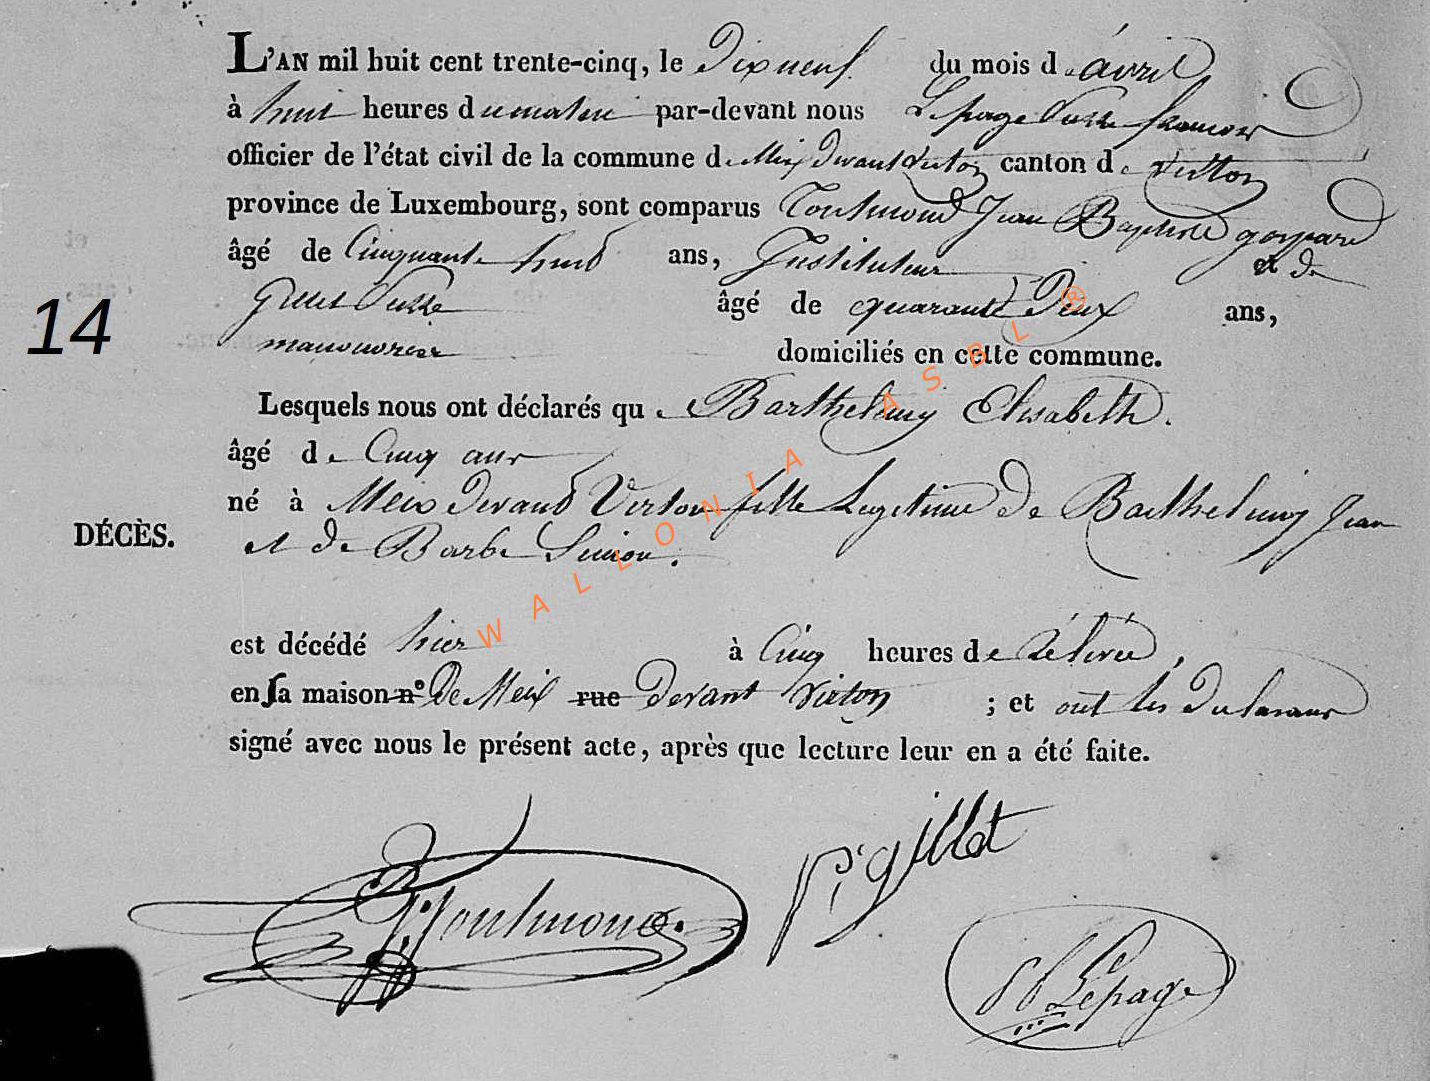 L'AN mil huit cent trente-cinq, le Dix neuf du mois d'avril
à huit heures du matin par-devant nous Lepage françois
officier de l'état civil de la commune de Meix Devant Virton canton de Virton
province de Luxembourg, sont comparus Toulmond Jean Baptiste gaspard
âgé de Cinquante huit ans, Instituteur et de
Gillet
âgé de quarante Deux ans,
manouvrier domiciliés en cette commune.
14
Lesquels nous ont déclarés que Barthelemy Elisabeth.
âgé de Cinq ans
né à Meix devant Virton fille Legitime de Barthelemy Jean
DÉCÈS.
et de Barbe Simon.
est décédé hier à Cinq heures de rélevée,
en sa maison n° De Meix rue Devant Virton ; et ont les Declarans
signé avec nous le présent acte, après que lecture leur en a été faite.
Toulmond.
p. gillet
Lepage
WALLONIA ASBL ®